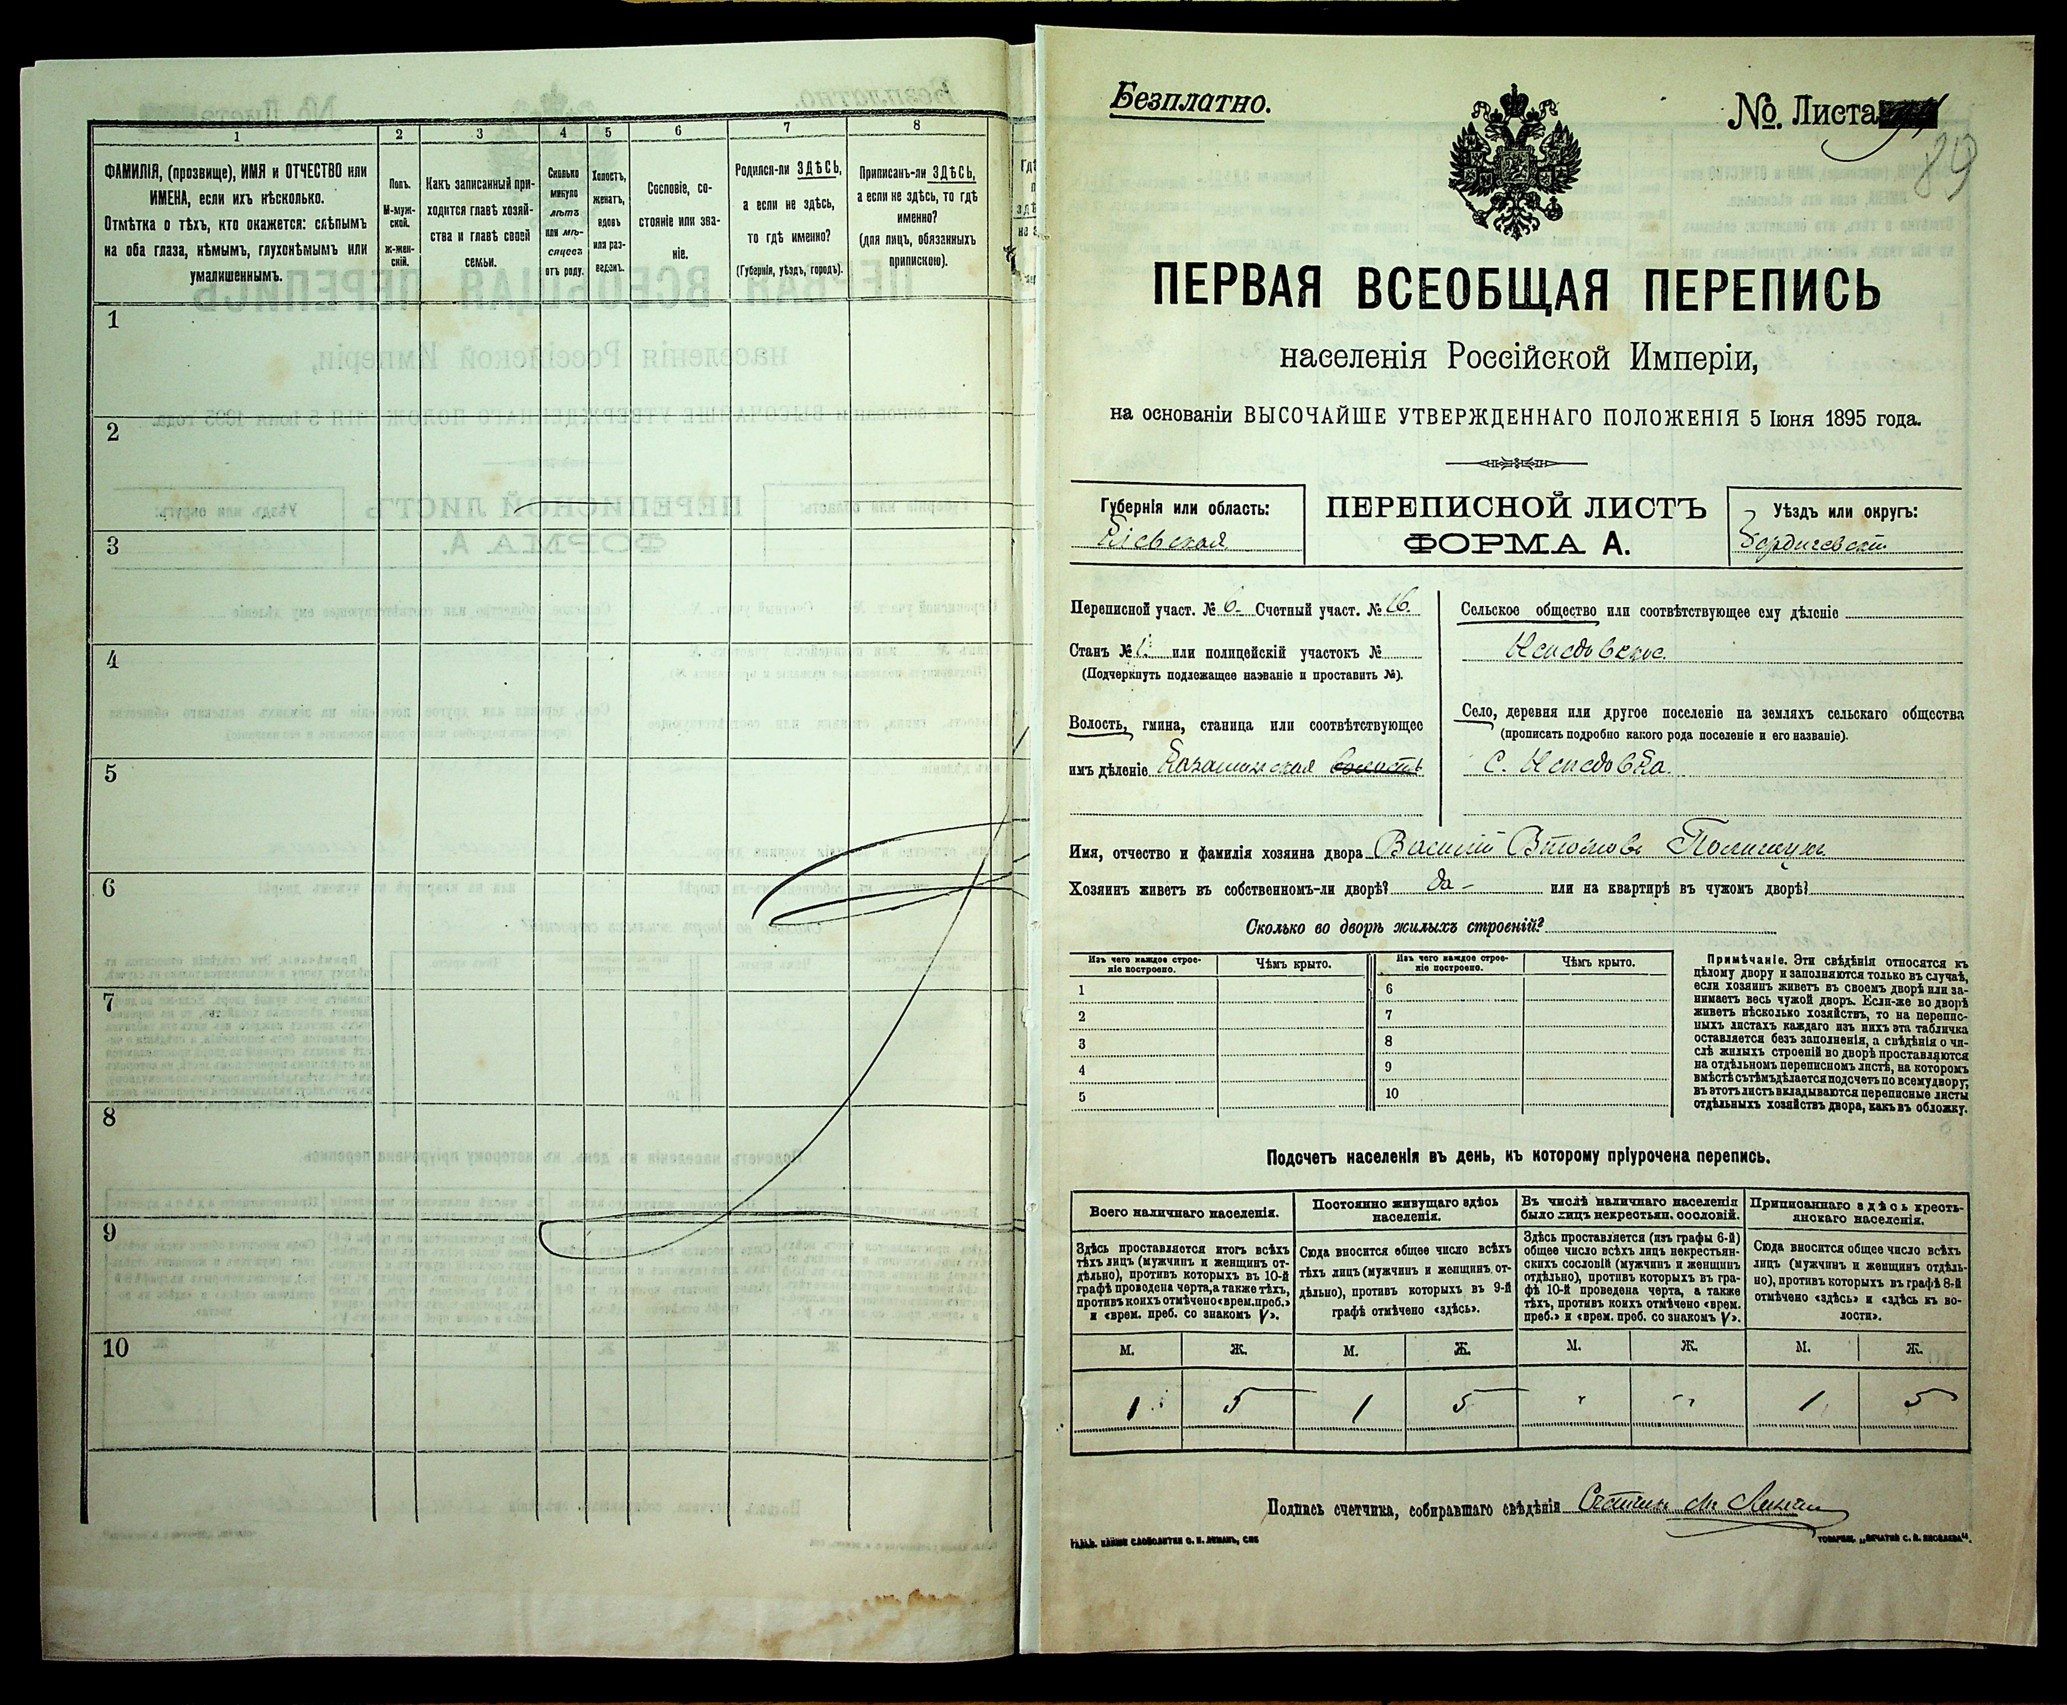 1
2
3
4
5
6
7
8
ФАМИЛІЯ, (прозвище), ИМЯ и ОТЧЕСТВО или
ИМЕНА, если ихъ нѣсколько.
Отмѣтка о тѣхъ, кто окажется: слѣпымъ
на оба глаза, нѣмымъ, глухонѣмымъ или
умалишеннымъ.
Полъ.
М-муж-
ской.
ж-жен-
скій.
Какъ записанный при-
ходится главѣ хозяй-
ства и главѣ своей
семьи.
Сколько
минуло
лѣтъ
или мѣ-
сяцевъ
отъ роду.
Холостъ,
женатъ,
вдовъ
или раз-
веденъ.
Сословіе, со-
стояніе или зва-
ніе.
Родился-ли ЗДѢСЬ,
а если не здѣсь,
то гдѣ именно?
(Губернія, уѣздъ, городъ).
Приписанъ-ли ЗДѢСЬ,
а если не здѣсь, то гдѣ
именно?
(для лицъ, обязанныхъ
припискою).
1
2
3
4
5
6
7
8
9
10
Безплатно.
№ Листа
89
ПЕРВАЯ ВСЕОБЩАЯ ПЕРЕПИСЬ
населенія Россійской Имперіи,
на основаніи ВЫСОЧАЙШЕ УТВЕРЖДЕННАГО ПОЛОЖЕНІЯ 5 Іюня 1895 года.
Губернія или область:
Кіевская
ПЕРЕПИСНОЙ ЛИСТЪ
ФОРМА А.
Уѣздъ или округъ:
Бердичевскій
Переписной участ. № 6. Счетный участ. № 16.
Станъ № 1. или полицейскій участокъ №
(Подчеркнуть подлежащее названіе и проставить №).
Волость, гмина, станица или соотвѣтствующее
имъ дѣленіе Казатинская волость
Сельское общество или соотвѣтствующее ему дѣленіе
Село, деревня или другое поселеніе на земляхъ сельскаго общества
(прописать подробно какого рода поселеніе и его названіе).
с.
Имя, отчество и фамилія хозяина двора Василій Полищукъ
Хозяинъ живетъ въ собственномъ-ли дворѣ? да - или на квартирѣ въ чужомъ дворѣ?
Сколько во дворѣ жилыхъ строеній?
Изъ чего каждое строе-
ніе построено.
Чѣмъ крыто.
Изъ чего каждое строе-
ніе построено.
Чѣмъ крыто.
1
6
2
7
3
8
4
9
5
10
Примѣчаніе. Эти свѣдѣнія относятся къ
цѣлому двору и заполняются только въ случаѣ,
если хозяинъ живетъ въ своемъ дворѣ или за-
нимаетъ весь чужой дворъ. Если-же во дворѣ
живетъ нѣсколько хозяйствъ, то на перепис-
ныхъ листахъ каждаго изъ нихъ эта табличка
оставляется безъ заполненія, а свѣдѣнія о чи-
слѣ жилыхъ строеній во дворѣ проставляются
на отдѣльномъ переписномъ листѣ, на которомъ
вмѣстѣ съ тѣмъ дѣлается подсчетъ по всему двору;
въ этотъ листъ вкладываются переписные листы
отдѣльныхъ хозяйствъ двора, какъ въ обложку.
Подсчетъ населенія въ день, къ которому пріурочена перепись.
Всего наличнаго населенія.
Постоянно живущаго здѣсь
населенія.
Въ числѣ наличнаго населенія
было лицъ некрестьян. сословій.
Приписаннаго здѣсь кресть-
янскаго населенія.
Здѣсь проставляется итогъ всѣхъ
тѣхъ лицъ (мужчинъ и женщинъ от-
дѣльно), противъ которыхъ въ 10-й
графѣ проведена черта, а также тѣхъ,
противъ коихъ отмѣчено «врем. преб.»
и «врем. преб. со знакомъ V».
Сюда вносится общее число всѣхъ
тѣхъ лицъ (мужчинъ и женщинъ от-
дѣльно), противъ которыхъ въ 9-й
графѣ отмѣчено «здѣсь».
Здѣсь проставляется (изъ графы 6-й)
общее число всѣхъ лицъ некрестьян-
скихъ сословій (мужчинъ и женщинъ
отдѣльно), противъ которыхъ въ гра-
фѣ 10-й проведена черта, а также
тѣхъ, противъ коихъ отмѣчено «врем.
преб.» и «врем. преб. со знакомъ V».
Сюда вносится общее число всѣхъ
лицъ (мужчинъ и женщинъ отдѣль-
но), противъ которыхъ въ графѣ 8-й
отмѣчено «здѣсь» и «здѣсь къ во-
лости».
М. Ж. М. Ж. М. Ж. М. Ж.
1 5 1 5 " " 1 5
Подпись счетчика, собиравшаго свѣдѣнія